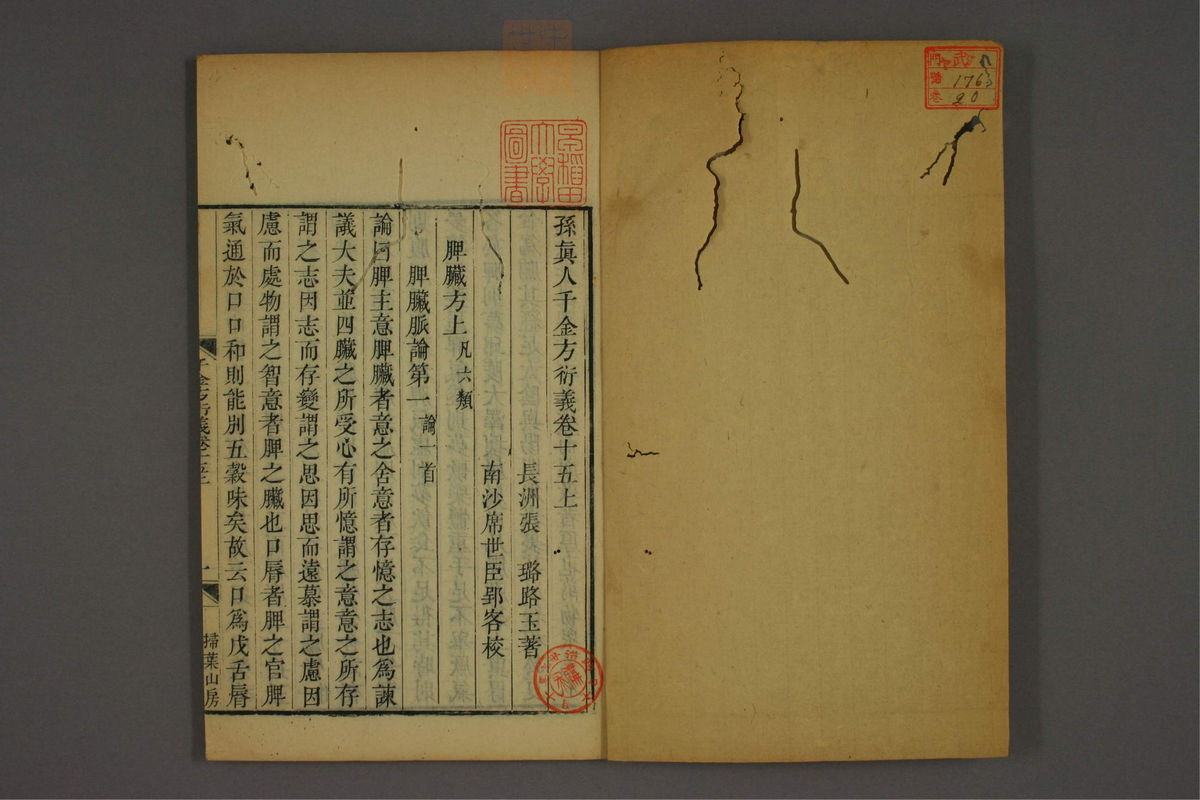 孫眞人千金方衍義卷十五上
長洲張 璐路玉著
南沙席世臣郢客校
脾臟方上凡六類
脾臟脈論第一論一首
論曰脾主意脾臟者意之舍意者存憶之志也爲諫
議大夫並四臟之所受心有所憶謂之意意之所存
謂之志因志而存變謂之思因思而遠慕謂之慮因
慮而處物謂之智意者脾之臟也口唇者脾之官脾
氣通於口口和則能別五穀味矣故云口爲戊舌唇
掃葉山房
早稻田大學圖書
1763
20